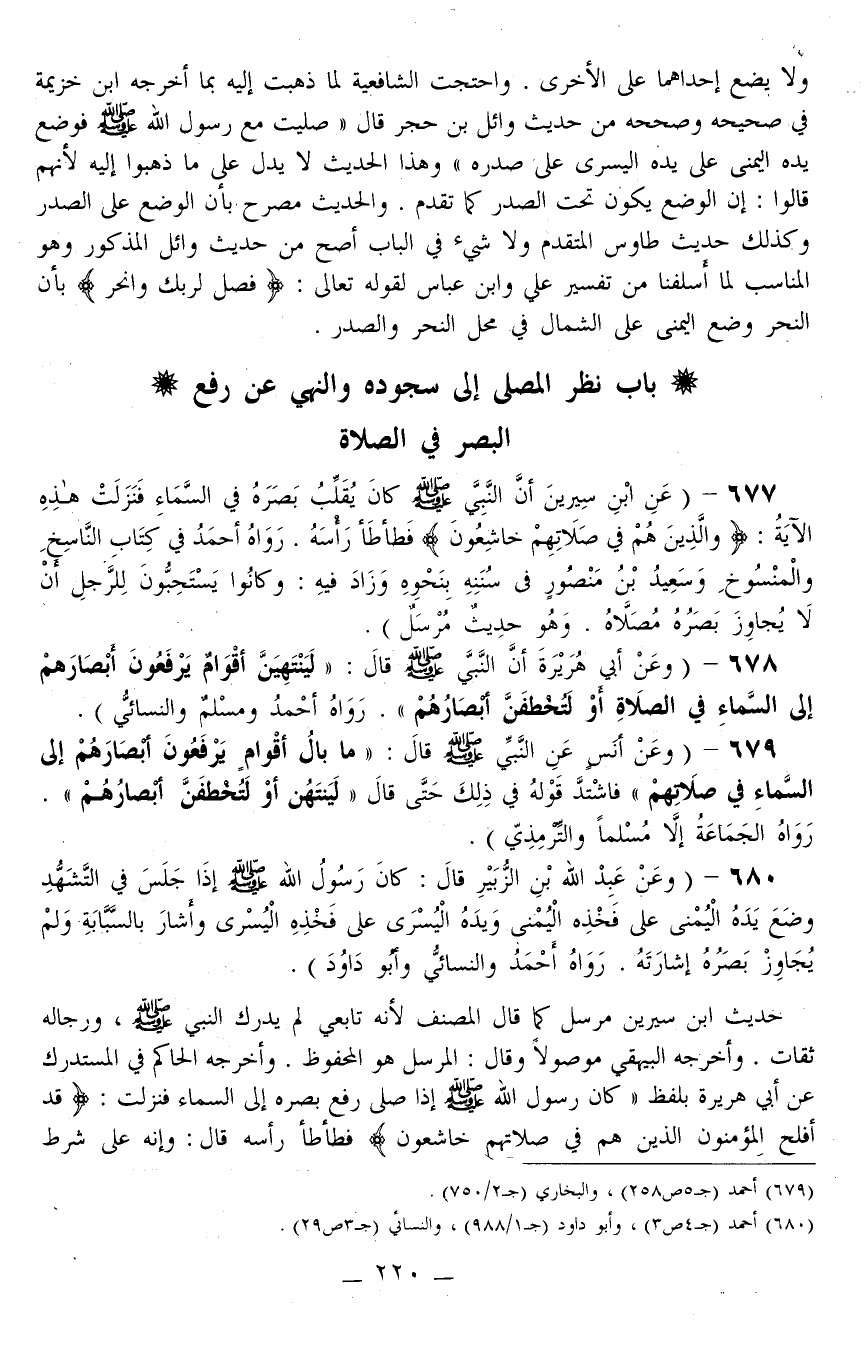 ولا يضع إحداهما على الأخرى . واحتجت الشافعية لما ذهبت إليه بما أخرجه ابن خزيمة
في صحيحه وصححه من حديث وائل بن حجر قال « صليت مع رسول الله ﷺ فوضع
يده اليمنى على يده اليسرى على صدره » وهذا الحديث لا يدل على ما ذهبوا إليه لأنهم
قالوا : إن الوضع يكون تحت الصدر كما تقدم . والحديث مصرح بأن الوضع على الصدر
وكذلك حديث طاوس المتقدم ولا شيء في الباب أصح من حديث وائل المذكور وهو
المناسب لما أسلفنا من تفسير علي وابن عباس لقوله تعالى : ﴿ فصل لربك وانحر ﴾ بأن
النحر وضع اليمنى على الشمال في محل النحر والصدر .
باب نظر المصلى إلى سجوده والنهي عن رفع
البصر في الصلاة
٦٧٧ – ( عَنِ ابْنِ سِيرينَ أنَّ النَّبيَّ ﷺ كانَ يُقَلِّبُ بَصَرَهُ في السَّمَاءِ فَنَزَلَتْ هـٰذِهِ
الآيَةُ : ﴿ والَّذِينَ هُمْ في صَلَاتِهِمْ خاشِعُونَ ﴾ فَطأطَأ رَأْسَهُ . رَوَاهُ أحمَدُ في كِتَابِ النَّاسِخِ
والْمَنْسُوخِ وَسَعِيدُ بْنُ مَنْصُورٍ فى سُنَنِهِ بِنَحْوِهِ وَزَادَ فيهِ : وكانُوا يَسْتَحِبُّونَ لِلرَّجلِ أَنْ
لَا يُجاوِزَ بَصَرُهُ مُصَلَّاهُ . وَهُو حديثٌ مُرْسَلٌ ) .
٦٧٨ – ( وعَنْ أبي هُرَيْرَةَ أنَّ النَّبيَّ ﷺ قالَ : « لَيَنْتَهِيَنَّ أقْوَامٌ يَرْفَعُونَ أَبْصَارَهمْ
إلى السَّماءِ في الصلاةِ أَوْ لَتُخْطفَنَّ أبْصَارُهُمْ » . رَوَاهُ أحْمدُ ومسْلمٌ والنسائيُّ ) .
٦٧٩ – ( وعَنْ أنَسٍ عَنِ النَّبيِّ ﷺ قالَ : « ما بالُ أقْوامٍ يَرْفَعُونَ أبْصَارَهُمْ إلى
السَّماءِ في صلَاتِهِمْ » فاشْتدَّ قَوْلهُ في ذٰلِكَ حَتَّى قالَ « لَيَنتَهُن أوْ لَتُخْطفَنَّ أبْصارُهُـمْ » .
رَوَاهُ الجَمَاعَةُ إلَّا مُسْلماً والتِّرْمِذِيّ ) .
٦٨٠ – ( وعَنْ عَبِدْ الله بْنِ الزُّبَيْرِ قالَ : كانَ رَسُولُ الله ﷺ إذَا جَلَسَ في التَّشَهُّدِ
وضَعَ يَدَهُ الْيُمْنى على فَخْذِه الْيُمْنى وَيدَهُ الْيُسْرَى على فَخْذِهِ الْيُسْرى وأشارَ بالسَّبَّابَةِ وَلمْ
يُجَاوِزْ بَصَرُهُ إشارَتَهُ . رَوَاهُ أَحْمَدُ والنسائيُّ وأبُو دَاوُدَ ) .
حديث ابن سيرين مرسل كما قال المصنف لأنه تابعي لم يدرك النبي ﷺ ، ورجاله
ثقات . وأخرجه البيهقي موصولاً وقال : المرسل هو المحفوظ . وأخرجه الحاكم في المستدرك
عن أبي هريرة بلفظ « كان رسول الله ﷺ إذا صلى رفع بصره إلى السماء فنزلت : ﴿ قد
أفلح المؤمنون الذين هم في صلاتهم خاشعون ﴾ فطأطأ رأسه قال : وإنه على شرط
(٦٧٩) أحمد (جـ٥ص٢٥٨) ، والبخاري (جـ٧٥٠/٢) .
(٦٨٠) أحمد (جـ٤ص٣) ، وأبو داود (جـ٩٨٨/١) ، والنسائي (جـ٣ص٢٩) .
– ٢٢٠ –